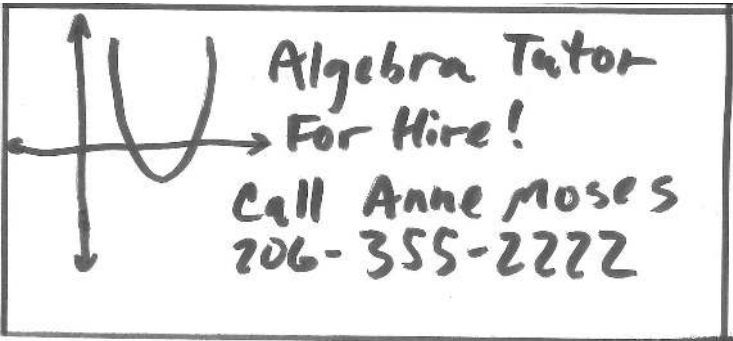 Algebra Tutor
For Hire!
Call Anne Moses
206-355-2222